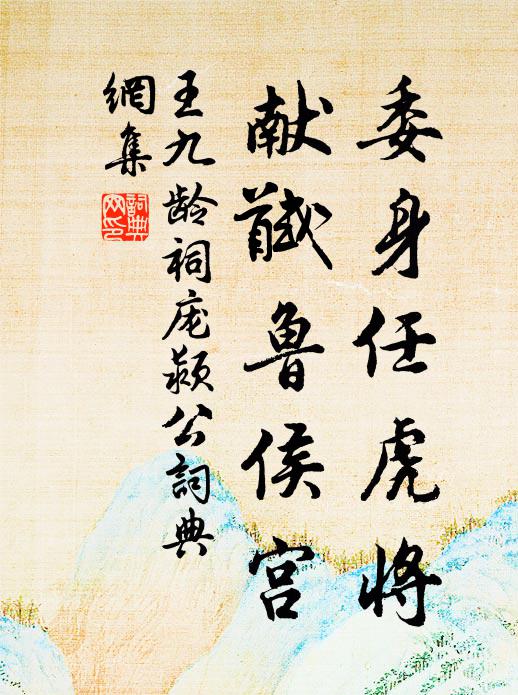 委身任虎将
献馘鲁侯宫
王九龄祠庞颍公詞典
網集
詞典
网印